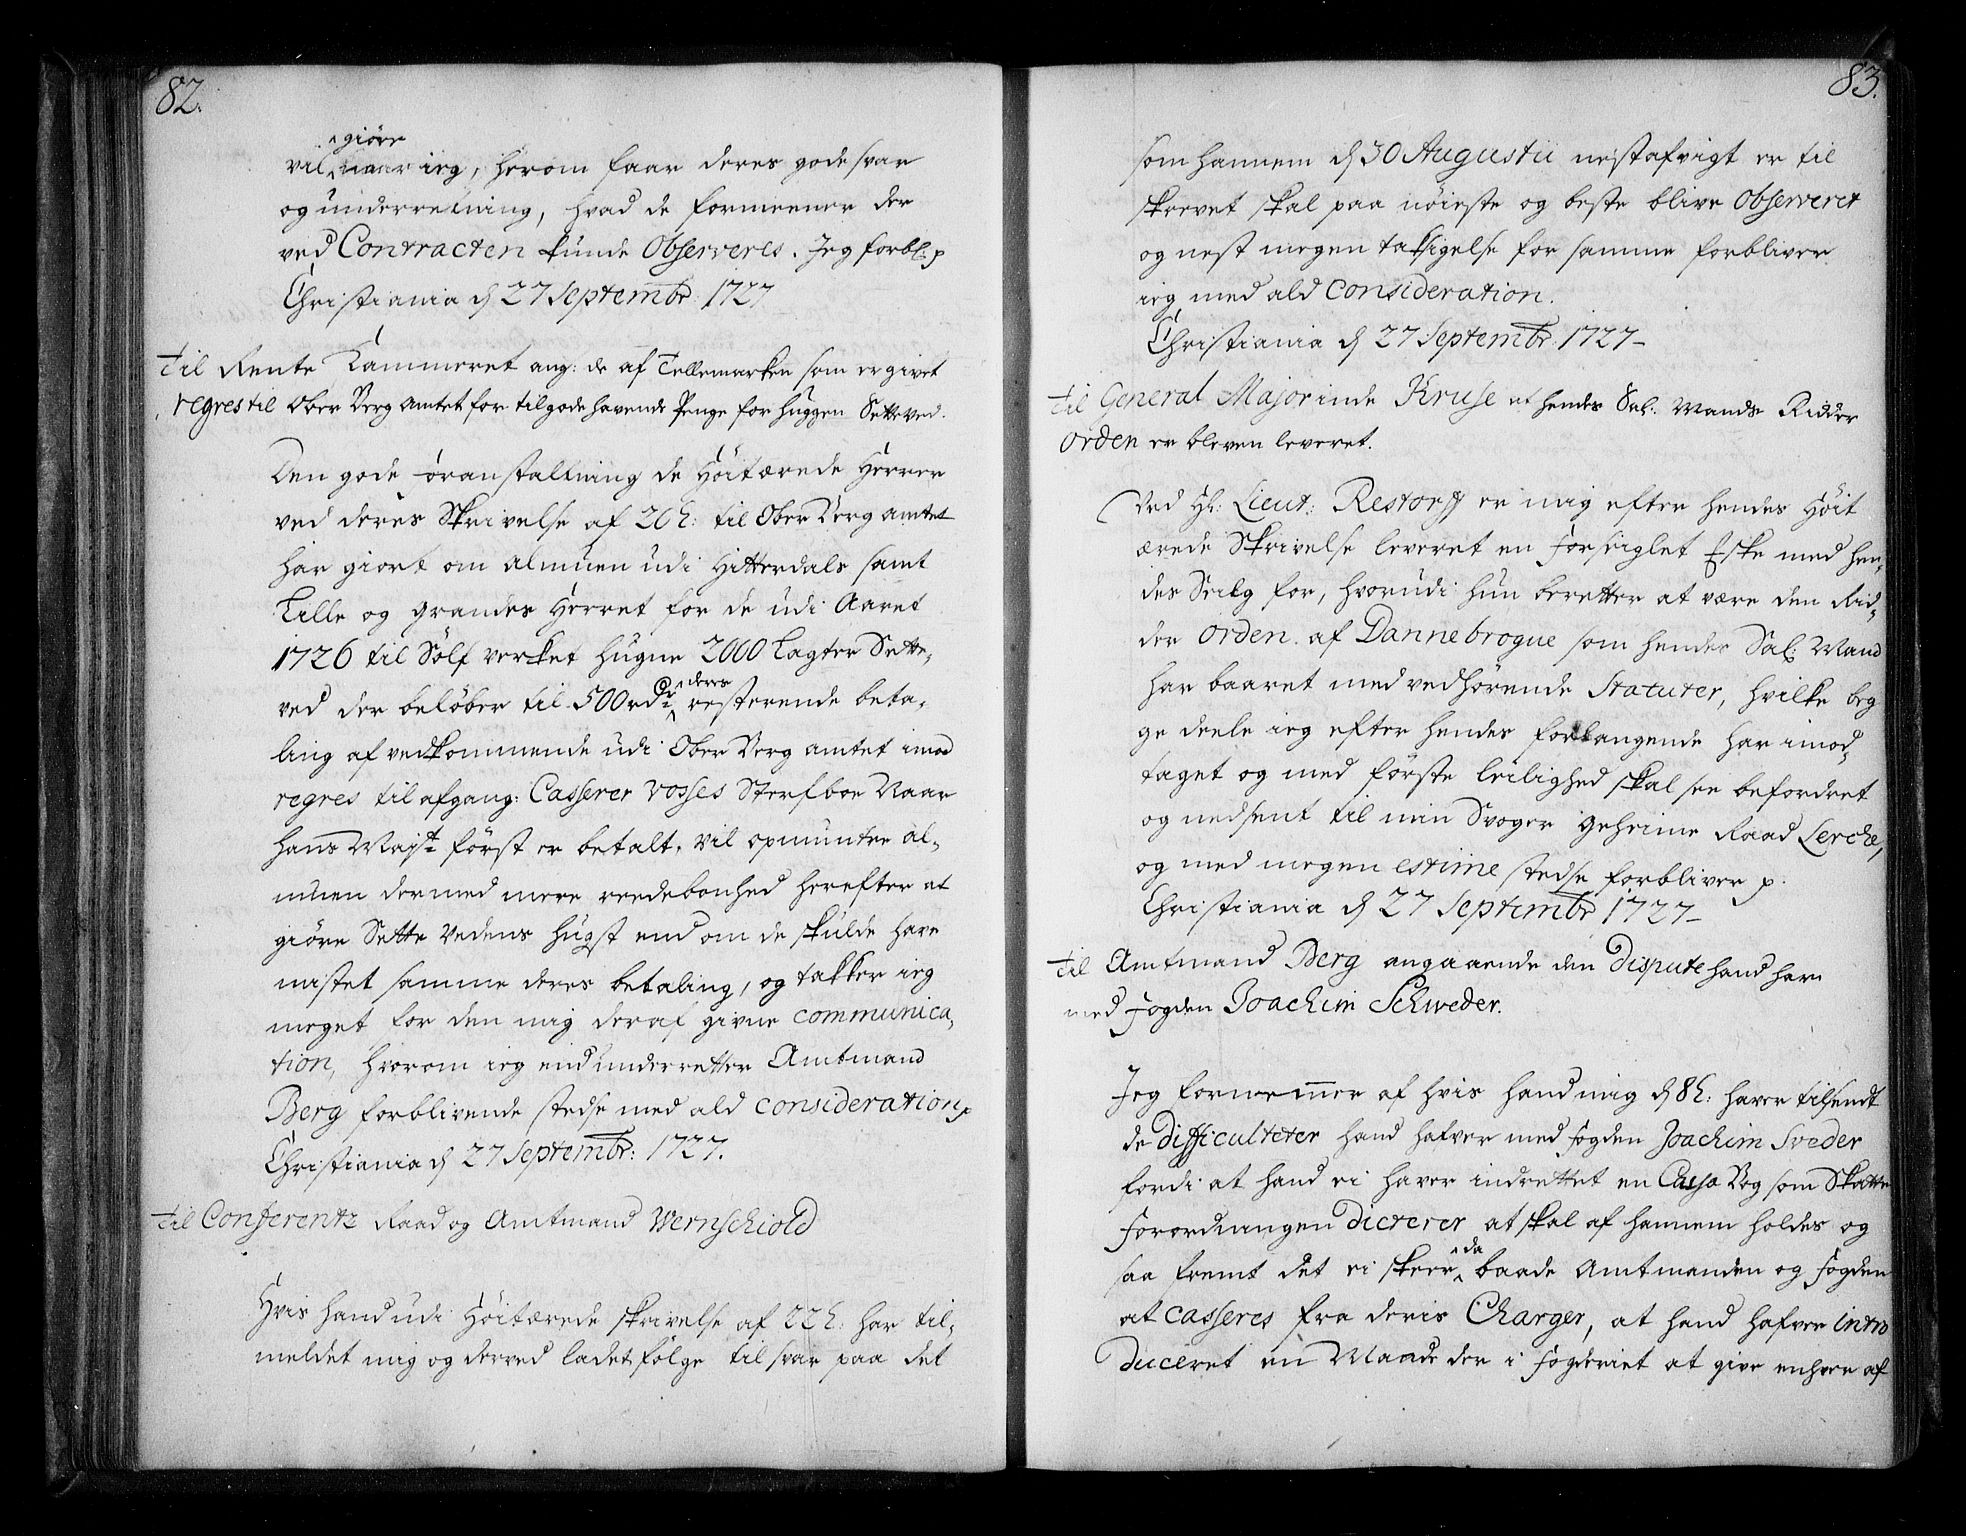 82.
giöre
vil naar ieg, herom faar deres gode svar
og underretning, hvad de formeener der
ved Contracten kunde Observeres. Jeg forbl: p
Christiania d 27 Septembr 1727
Til Rente Cammeret ang: de af Tellemarken som er givet
regres til Ober Berg Amtet for tilgodehavende Penge for huggen Setteved.
Den gode foranstaltning de Höitærede Herrer
ved deres Skrivelse af 20 h: til Ober Berg Amtet
har giort om Almuen udi Hitterdals samt
Lille og Grandes Herret for de udi Aaret
1726 til Sölf verket hugne 2000 Lagter Sette,
ved der belöber til 500 rdr deres resterende beta,
ling af vedkommende udi Ober Berg amtet imod
regres til afgang: Casserer Vosses Sterfboe Naar
hans Mayt först er betalt, vil opmuntre al,
muen dermed mere reedebonhed herefter at
giöre Sette Vedens hugst end om de skulde have
mistet samme deres betaling, og takker ieg
meget for den mig deraf givne communica,
tion, hvorom ieg end underretter Amtmand
Berg forblivende stedse med ald consideration p
Christiania d 27 Septembr: 1727.
Til Conferentz Raad og Amtmand Wernschiold
Hvis hand udi Höitærede skrivelse af 22 h: har til,
meldet mig og derved ladet fölge til svar paa det
83.
som hannem d 30 Augustii nestafvigt er til
skrevet skal paa nöieste og beste blive Observeret
og nest megen taksigelse for samme forbliver
ieg med ald Consideration.
Christiania d 27 Septembr: 1727
Til General Majorinde Kruse at hendes Sal: Mands Ridder
Orden er bleven leveret.
Ved Hr: Lieut: Restorff er mig efter hendes Höit
ærede Skrivelse leveret en forseiglet Eske med hen,
des Seilg for, hvorudi hun beretter at være den Rid,
der Orden af Dannebrogue som hendes Sal: Mand
har baaret med vedhörende Statuter, hvilke beg
ge deele ieg efter hendes forlangende har imod,
taget og med förste leilighed skal see befordret
og nedsent til min Svoger Geheime Raad Lerche,
og med megen estime stedse forbliver p.
Christiania d 27 Septembr 1727
Til Amtmand Berg angaaende den Dispute hand har
med fogden Joachim Schweder.
Jeg fornemmer af hvis hand mig d 8 h: haver tilsendt
de difficulteter hand hafver med fogden Joachim Sveder
fordi at hand ei haver indrettet en Cassa Bog som Skatte
Forordningen dicterer at skal af hannem holdes og
saa fremt det ei skeer da baade Amtmanden og fogden
at casseres fra deris Charger, at hand hafver intro
duceret en Maade der i fogderiet at give enhver af